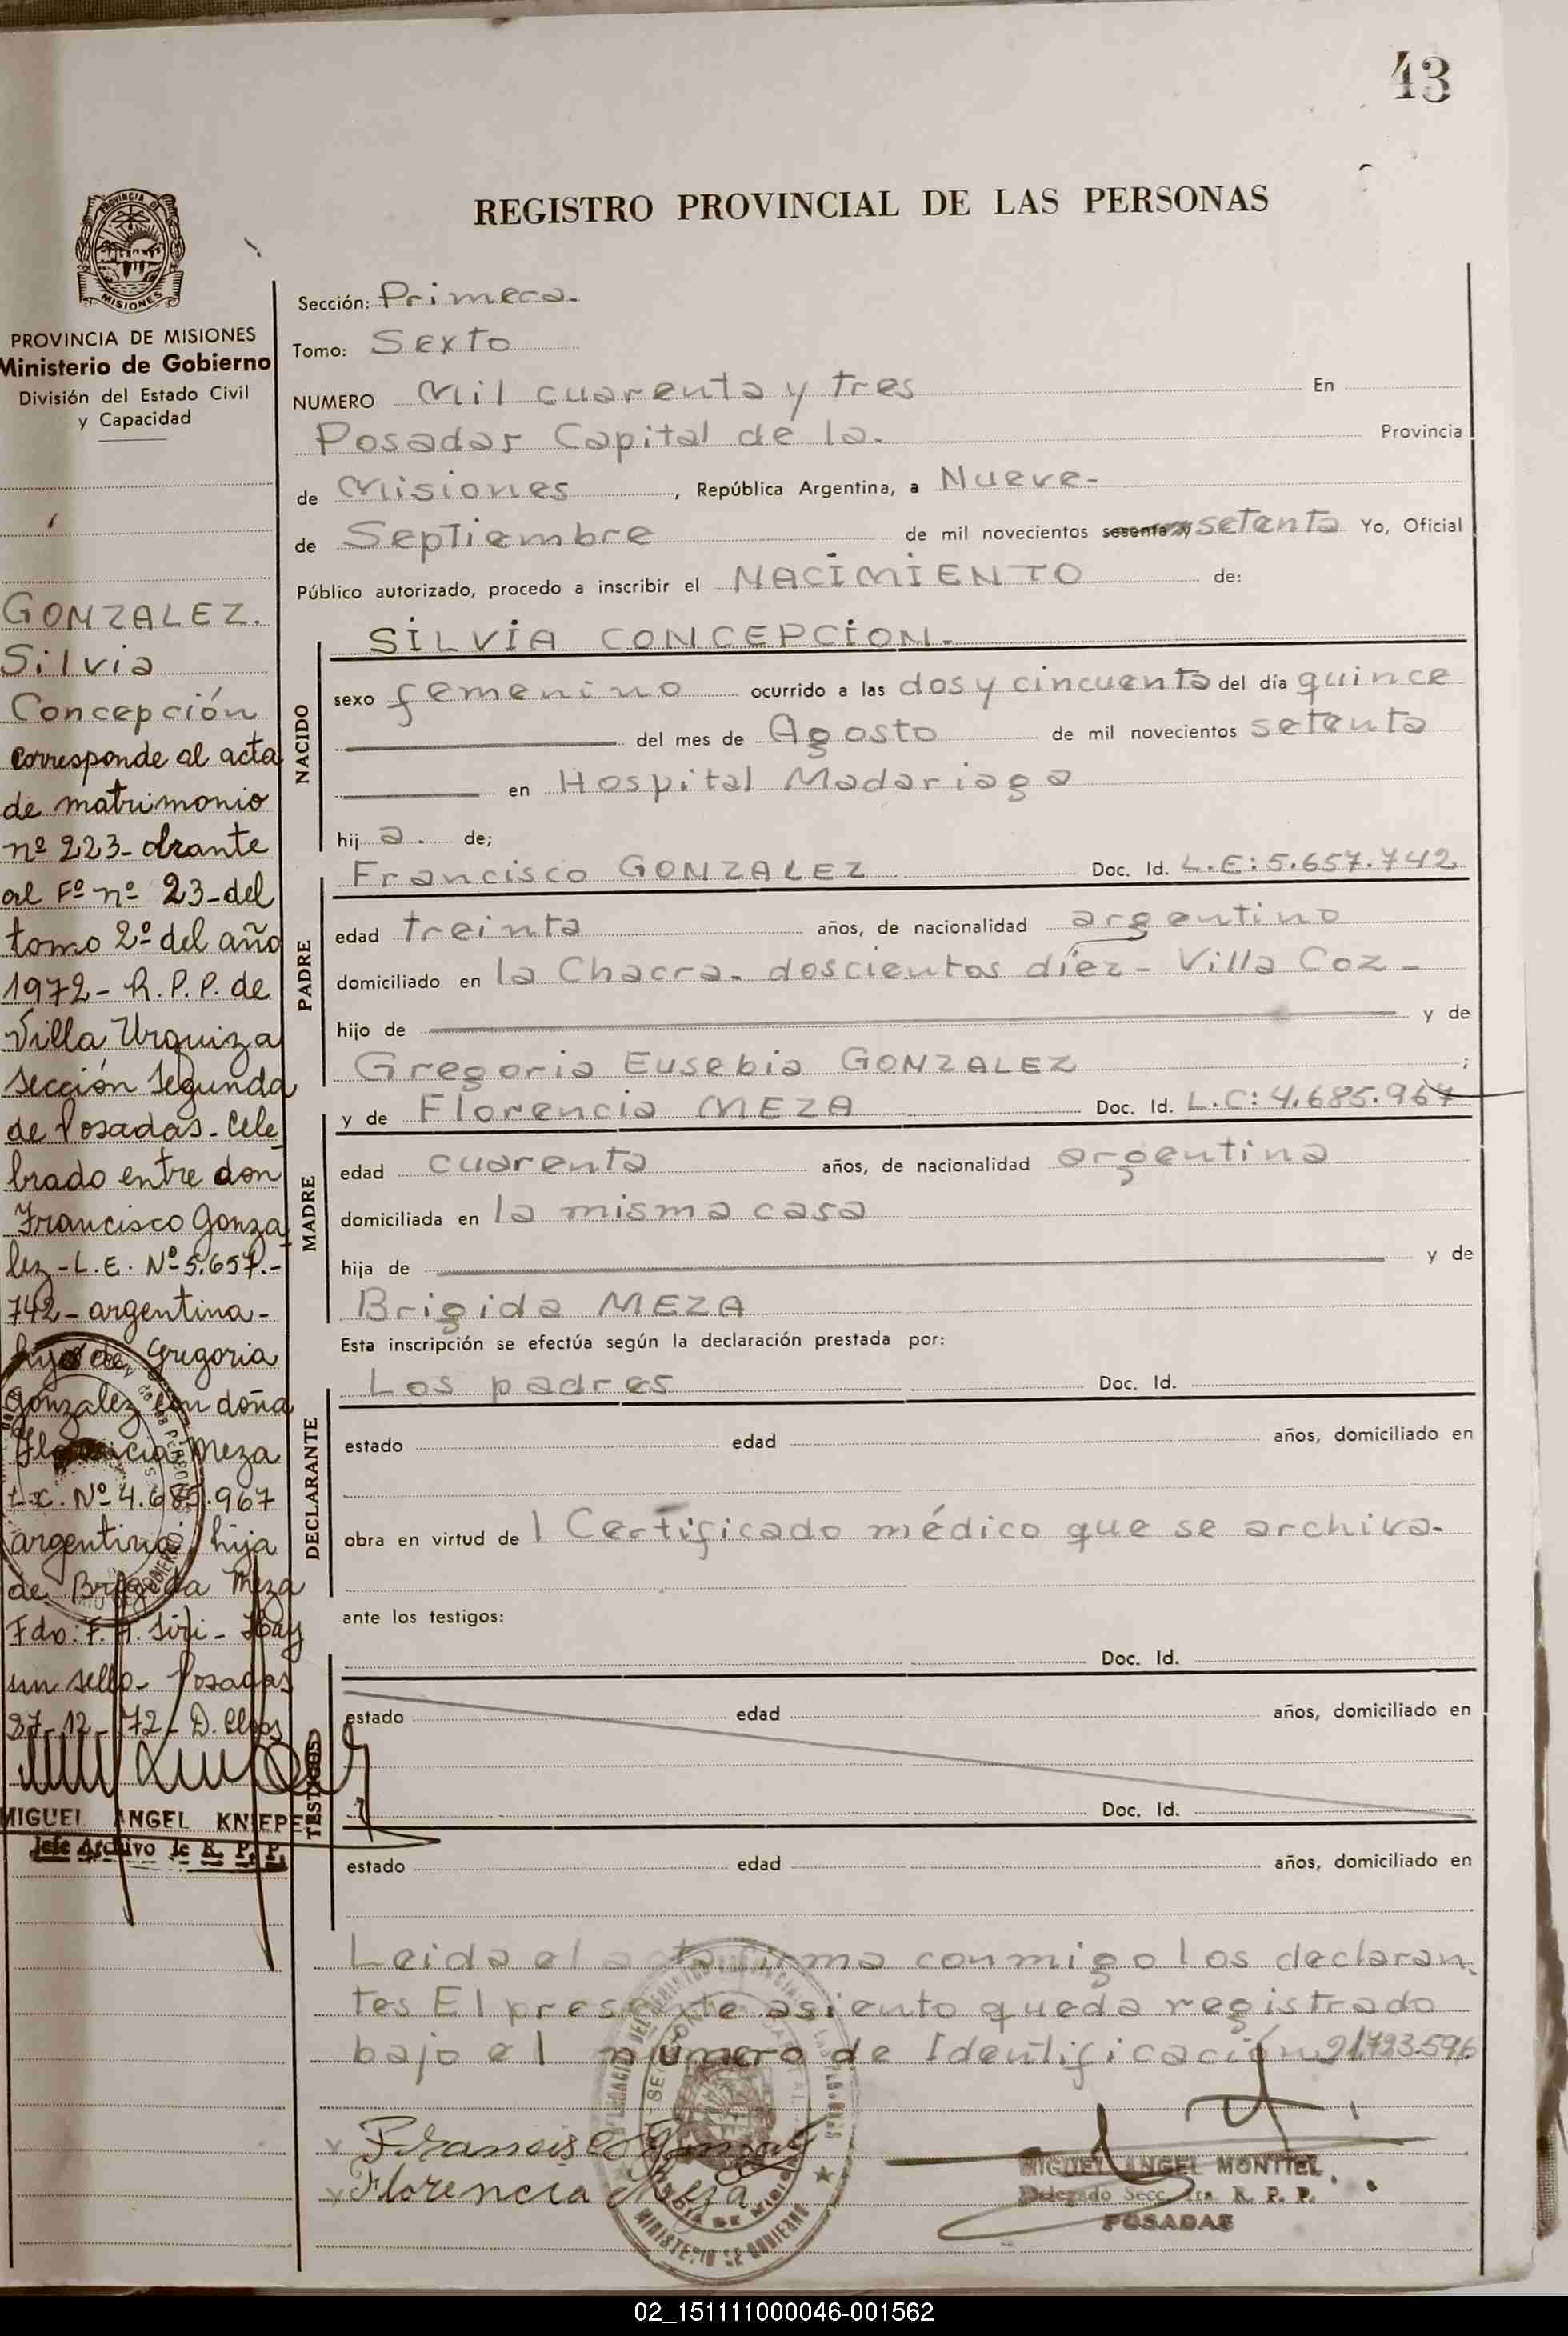 43
REGISTRO PROVINCIAL DE LAS PERSONAS
PROVINCIA DE
MISIONES
PROVINCIA DE MISIONES
Ministerio de Gobierno
División del Estado Civil
y Capacidad
GONZALEZ.
Silvia
Concepción
corresponde al acta
de matrimonio
nº 223- obrante
al Fº nº 23-del
tomo 2º del año
1972- R.P.P. de
Villa Urquiza
sección segunda
de Posadas- Cele
brado entre don
Francisco Gonza
lez-L.E. Nº 5.657.-
742- argentina-
hijo de Gregoria
Gonzalez con doña
Florencia Meza
L.C. Nº 4.685.967
argentina, hija
de Brigida Meza
Fdo: F. Siri- Hay
un sello- Posadas
27-12-72- D.
MIGUEL ANGEL KNIEPE
Jefe Archivo de R. P. P.
Sección: Primera-
Tomo: Sexto
NUMERO Mil cuarenta y tres En
Posadas Capital de la. Provincia
de Misiones, República Argentina, a Nueve-
de Septiembre de mil novecientos sesenta y setenta Yo, Oficial
Público autorizado, procedo a inscribir el NACIMIENTO de:
NACIDO
SILVIA CONCEPCION-
sexo femenino ocurrido a las dos y cincuenta del día quince
del mes de Agosto de mil novecientos setenta
en Hospital Madariaga
hij a. de;
PADRE
Francisco GONZALEZ Doc. Id. L.E:5.657.742
edad treinta años, de nacionalidad argentino
domiciliado en la Chacra- doscientos díez- Villa Coz-
hijo de y de
Gregoria Eusebia GONZALEZ ;
MADRE
y de Florencia MEZA Doc. Id. L.C:4.685.967
edad cuarenta años, de nacionalidad argentina
domiciliada en la misma casa
hija de y de
Brigida MEZA
Esta inscripción se efectúa según la declaración prestada por:
DECLARANTE
Los padres Doc. Id.
estado edad años, domiciliado en
obra en virtud de 1 Certificado médico que se archiva-
ante los testigos:
TESTIGOS
Doc. Id.
estado edad años, domiciliado en
Doc. Id.
estado edad años, domiciliado en
Leida el acta firma conmigo los declaran-
tes El presente asiento queda registrado
bajo el número de Identificación 21.723.596
Francisco Gonzalez
Florencia Meza
MINISTERIO DE GOBIERNO
MIGUEL ANGEL MONTIEL
Delegado Secc. 1ra. R. P. P.
POSADAS
02_151111000046-001562